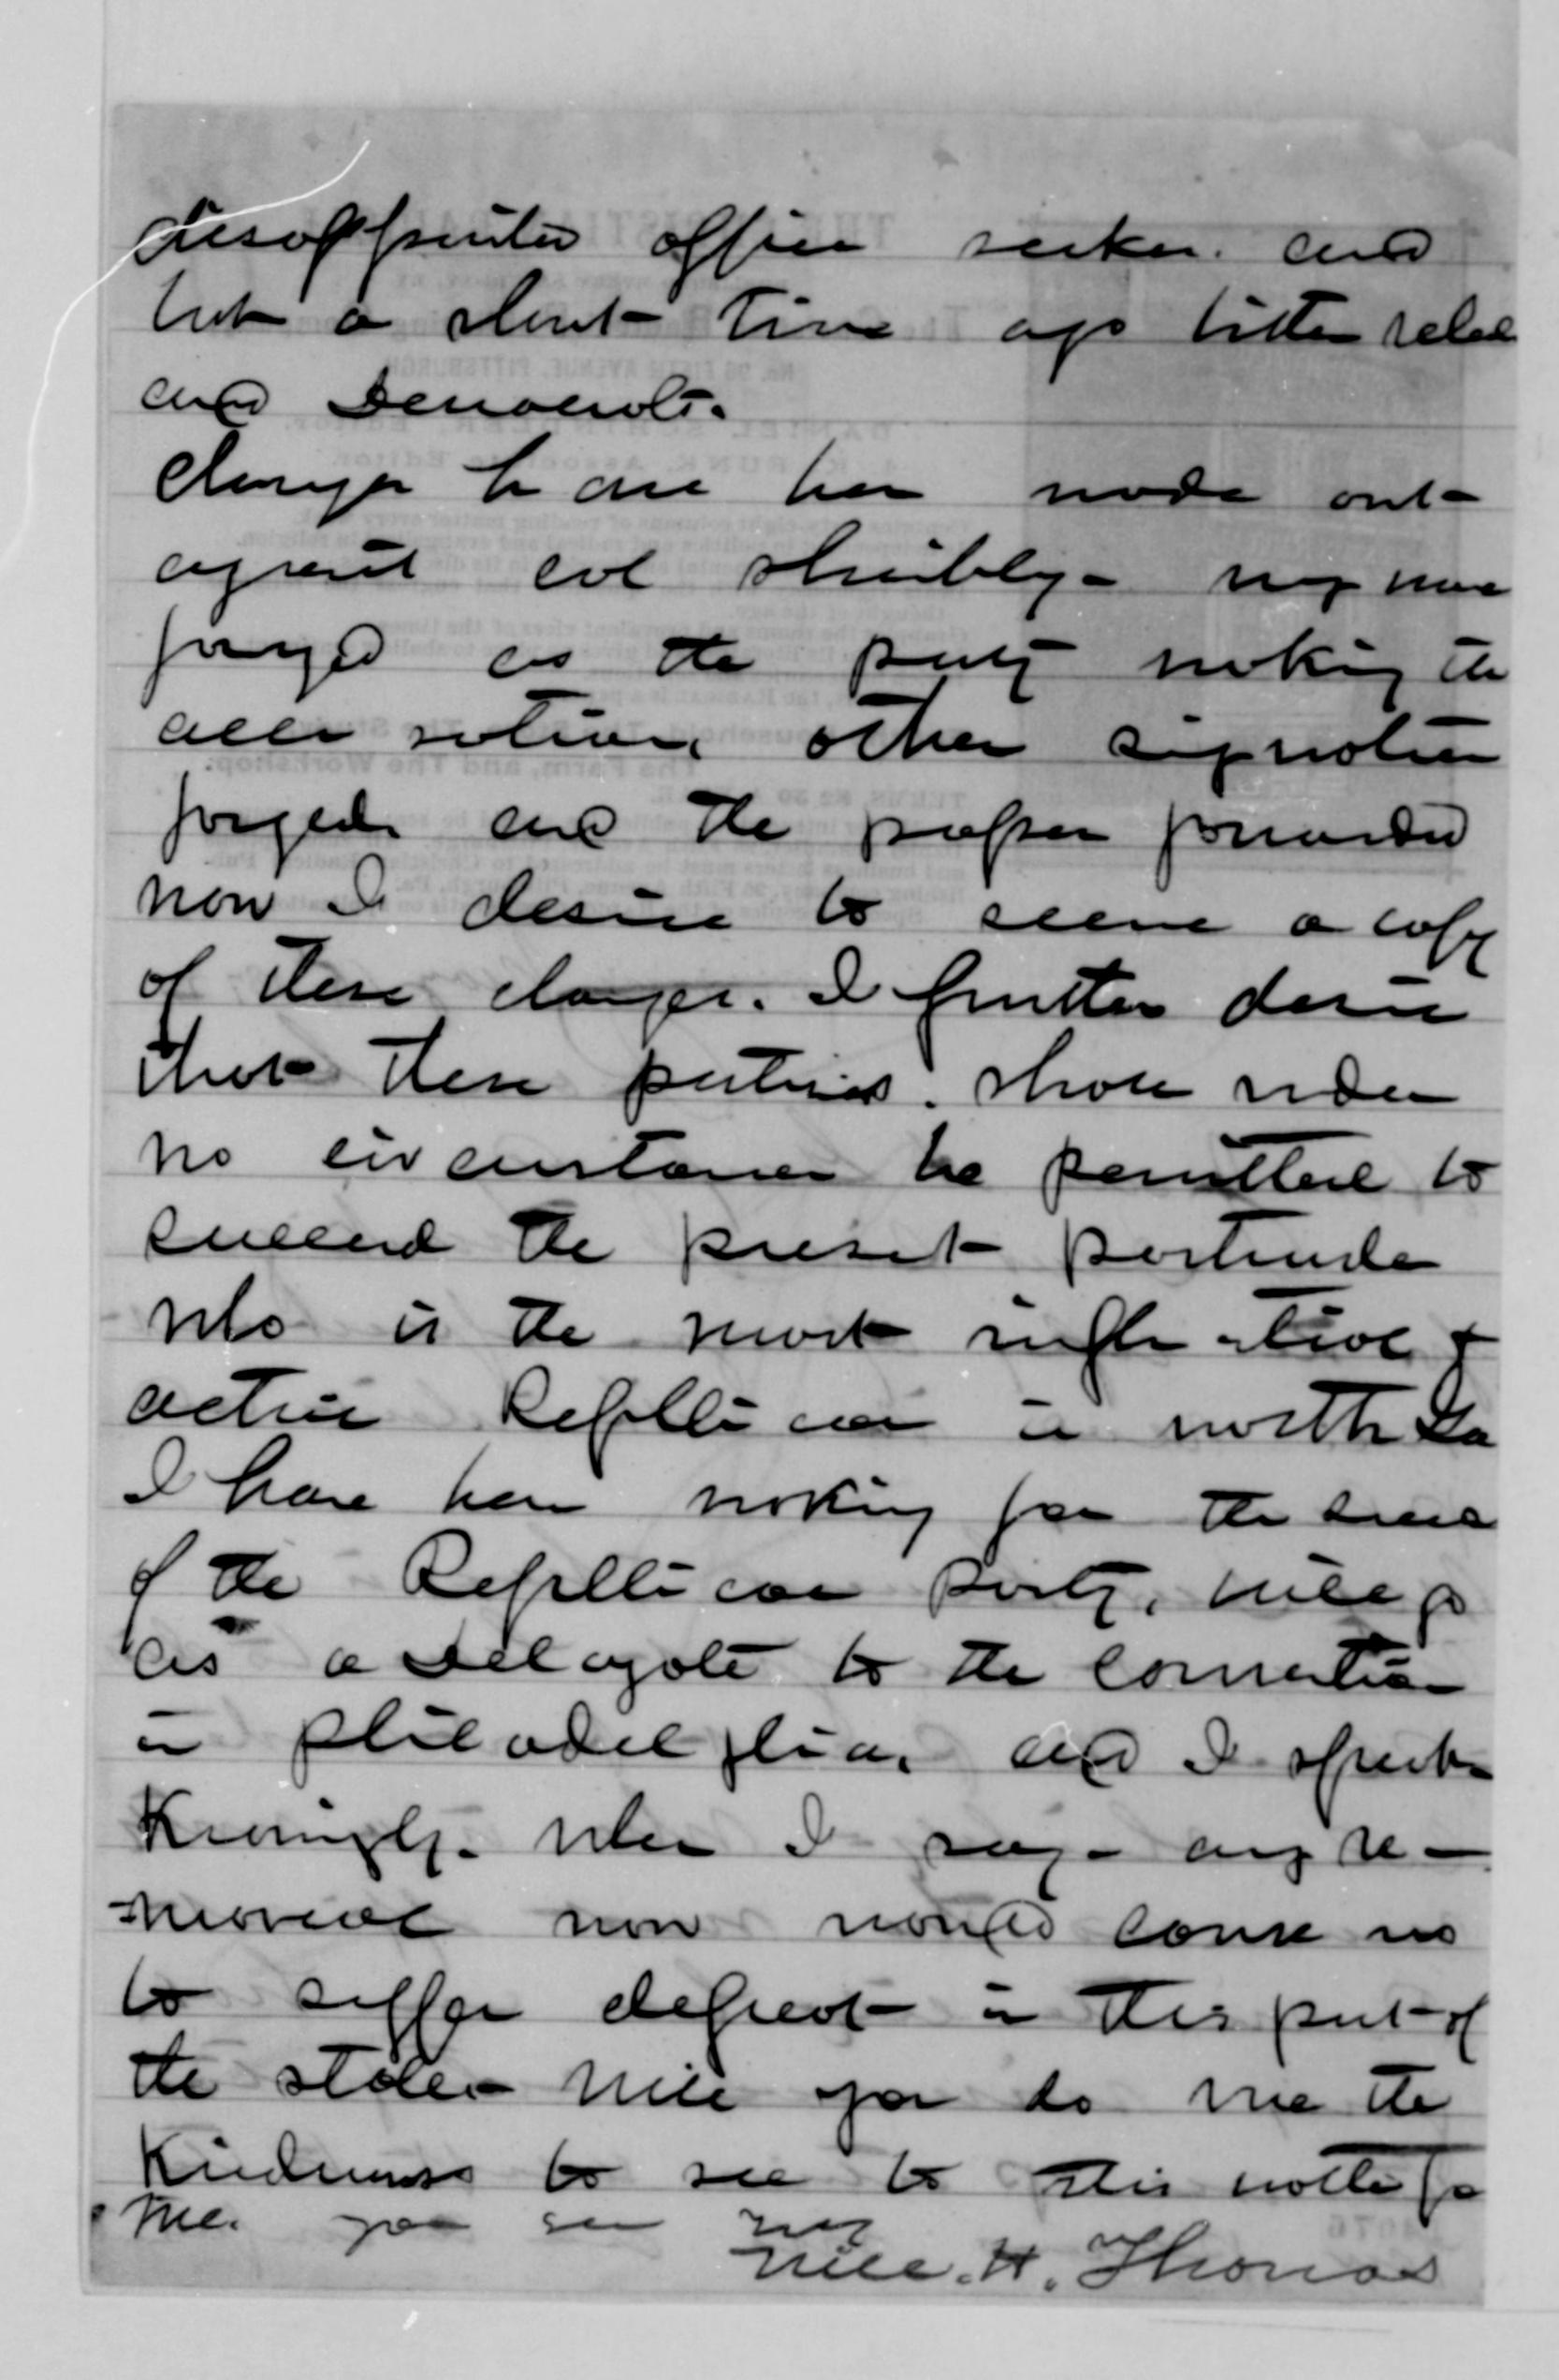 disappointed office seeker. and
but a short time ago bitter rebel
and Democrats.
Charges have been made out
against Col Sheibley - my name
forged as the party making the
accusation, other signatures
forged and the papers forwarded
now I desire to secure a copy
of these charges. I further desire
that these parties. shall under
no circumstances be permitted to
succeed the present postmaster
who is the most influential &
active Republican in north Ga
I have been working for the success
of the Republican party, will go
as a Delegate to the Convention
in Philadelphia, and I speak
Knowingly. when I say - any re-
-moval now would cause us
to suffer defeat in this part of
the state - will you do me the
Kindness to see to this matter for
me. your
Will. H. Thomas